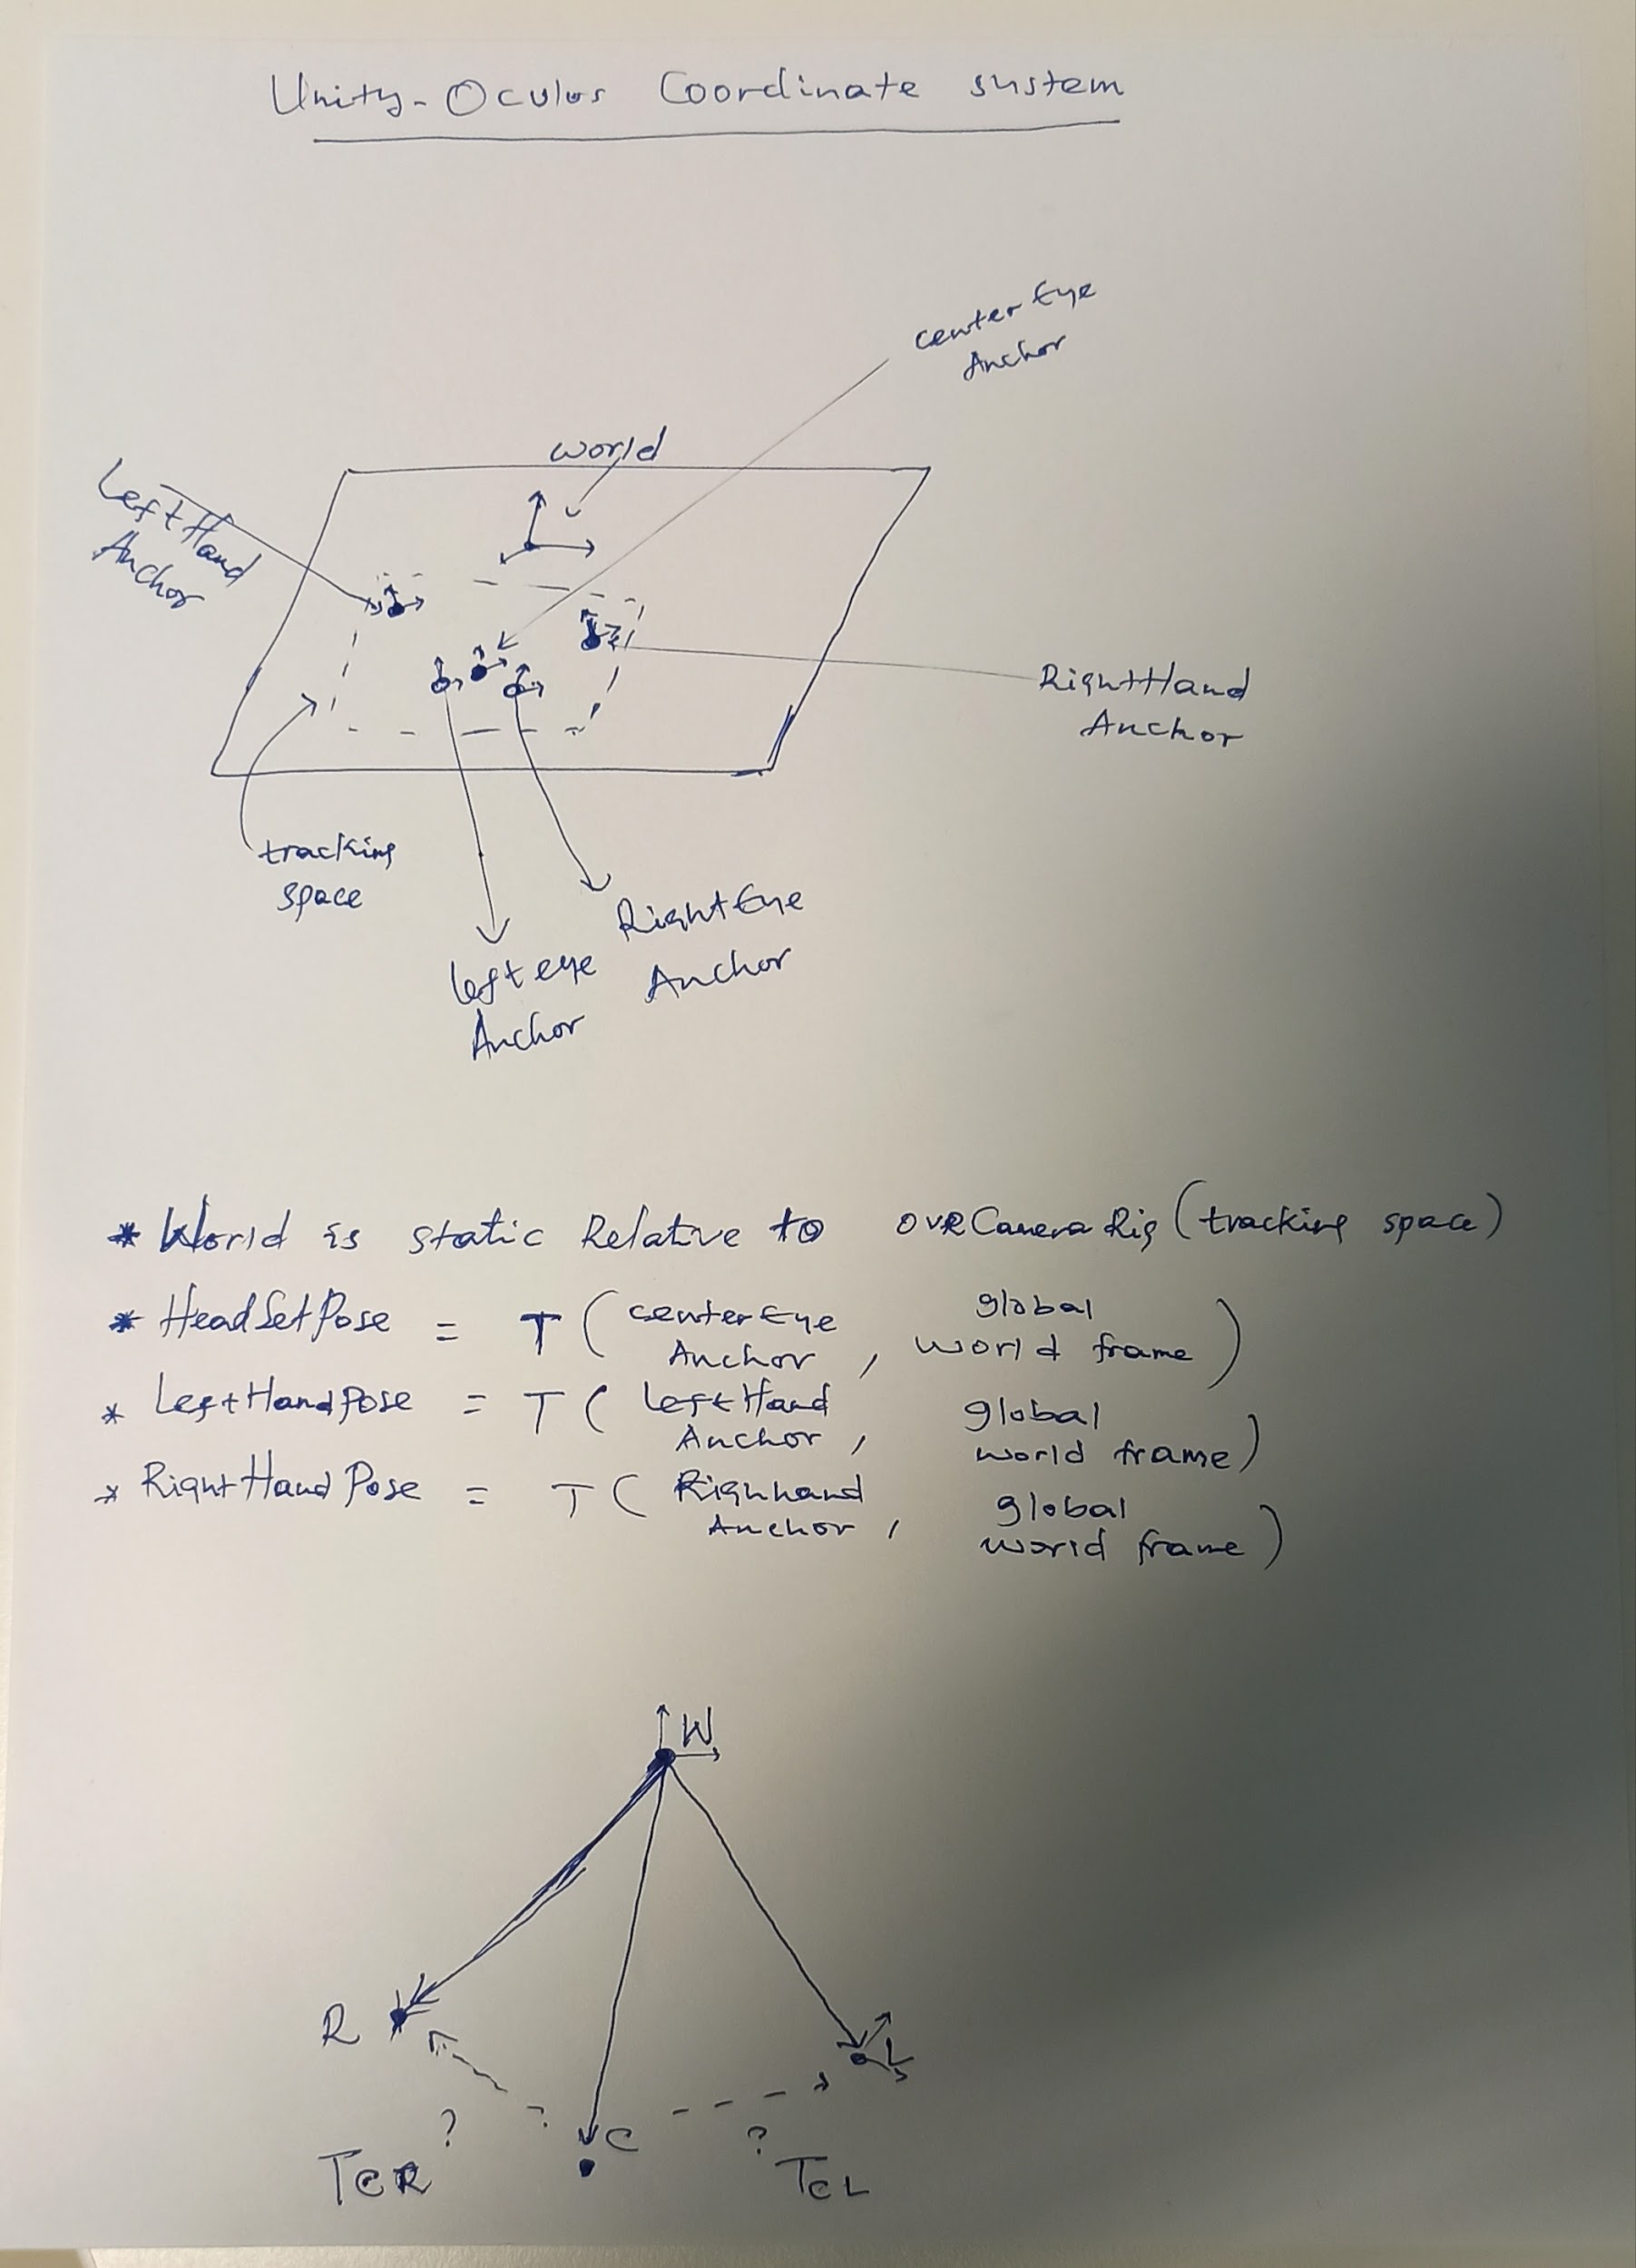 Unity-Oculus Coordinate system
center Eye
Anchor
world
LeftHand
Anchor
RightHand
Anchor
tracking
space
RightEye
Anchor
left eye
Anchor
* World is static Relative to OVRCameraRig (tracking space)
* HeadSetPose = T ( centerEye Anchor , global world frame )
* LeftHandPose = T ( leftHand Anchor , global world frame )
* RightHandPose = T ( Righhand Anchor , global world frame )
W
R
L
C
?
?
TCR
TCL